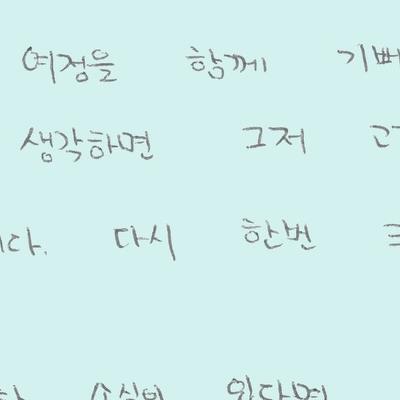 여정을 함께 기뻐
생각하면 그저
다. 다시 한번
소식이 있다면